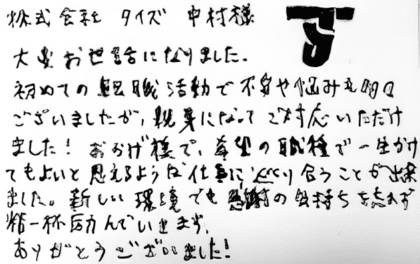 株式会社 タイズ 中村様
大変お世話になりました。
初めての転職活動で不安や悩みも多々
ございましたが、親身になってご対応いただけ
ました！おかげ様で、希望の職種で一生かけ
てもよいと思えるような仕事に巡り会うことが出来
ました。新しい環境でも感謝の気持ちを忘れず
精一杯励んでいきます。
ありがとうございました！